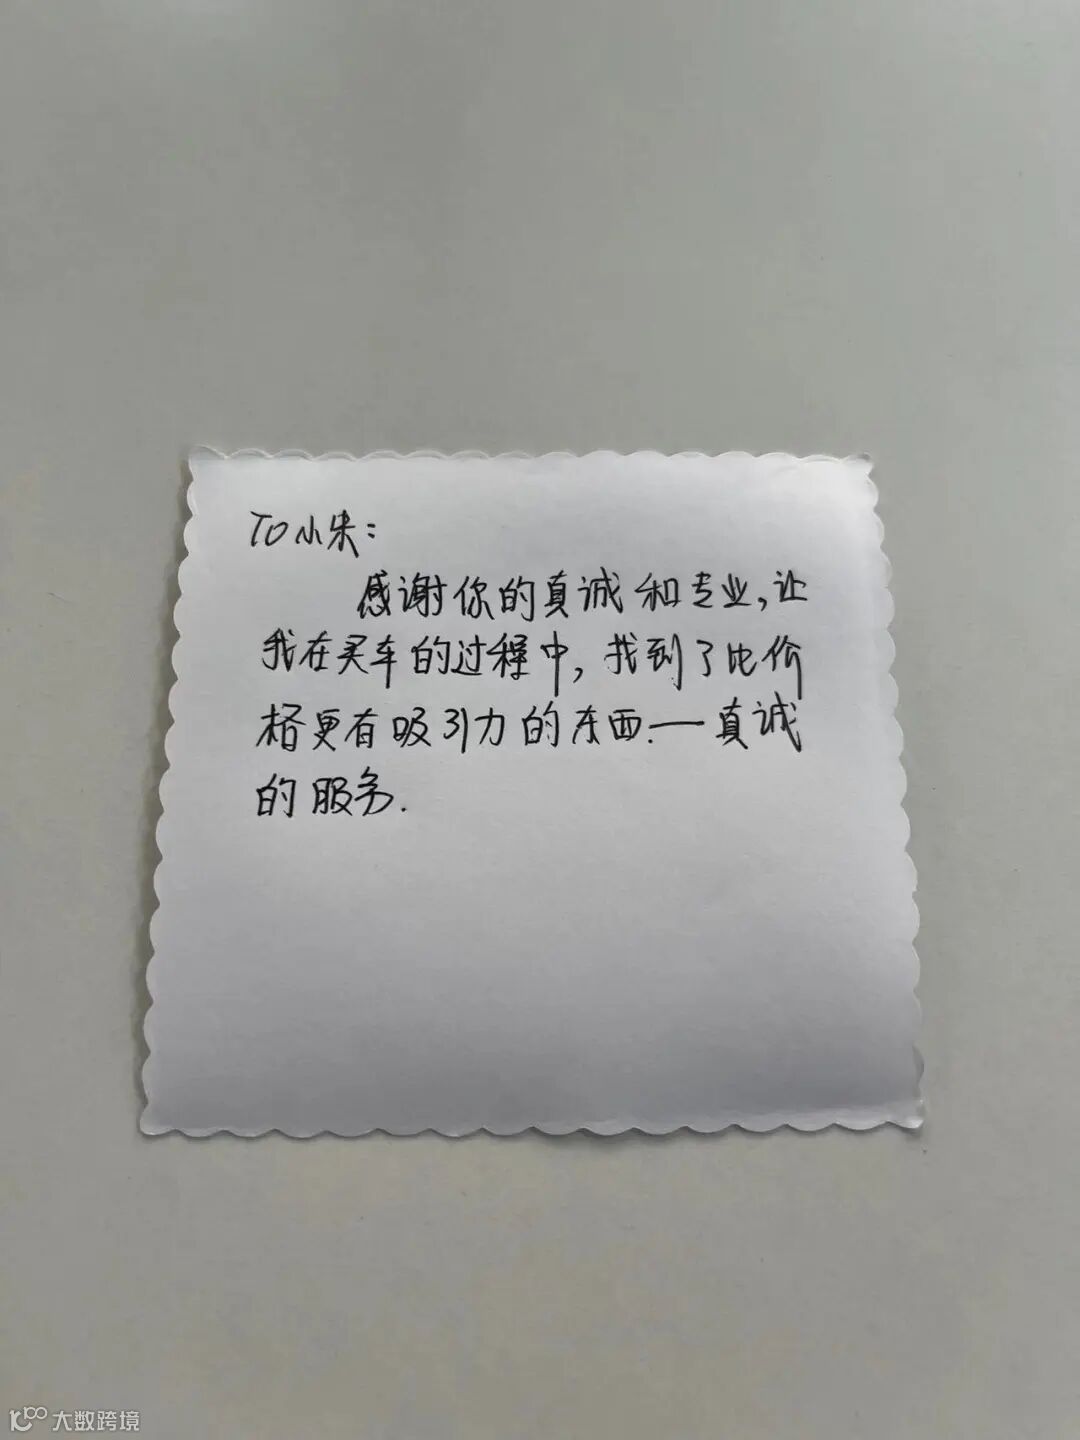 TO小朱：
感谢你的真诚和专业，让
我在买车的过程中，找到了比价
格更有吸引力的东西.—真诚
的服务.
大数跨境